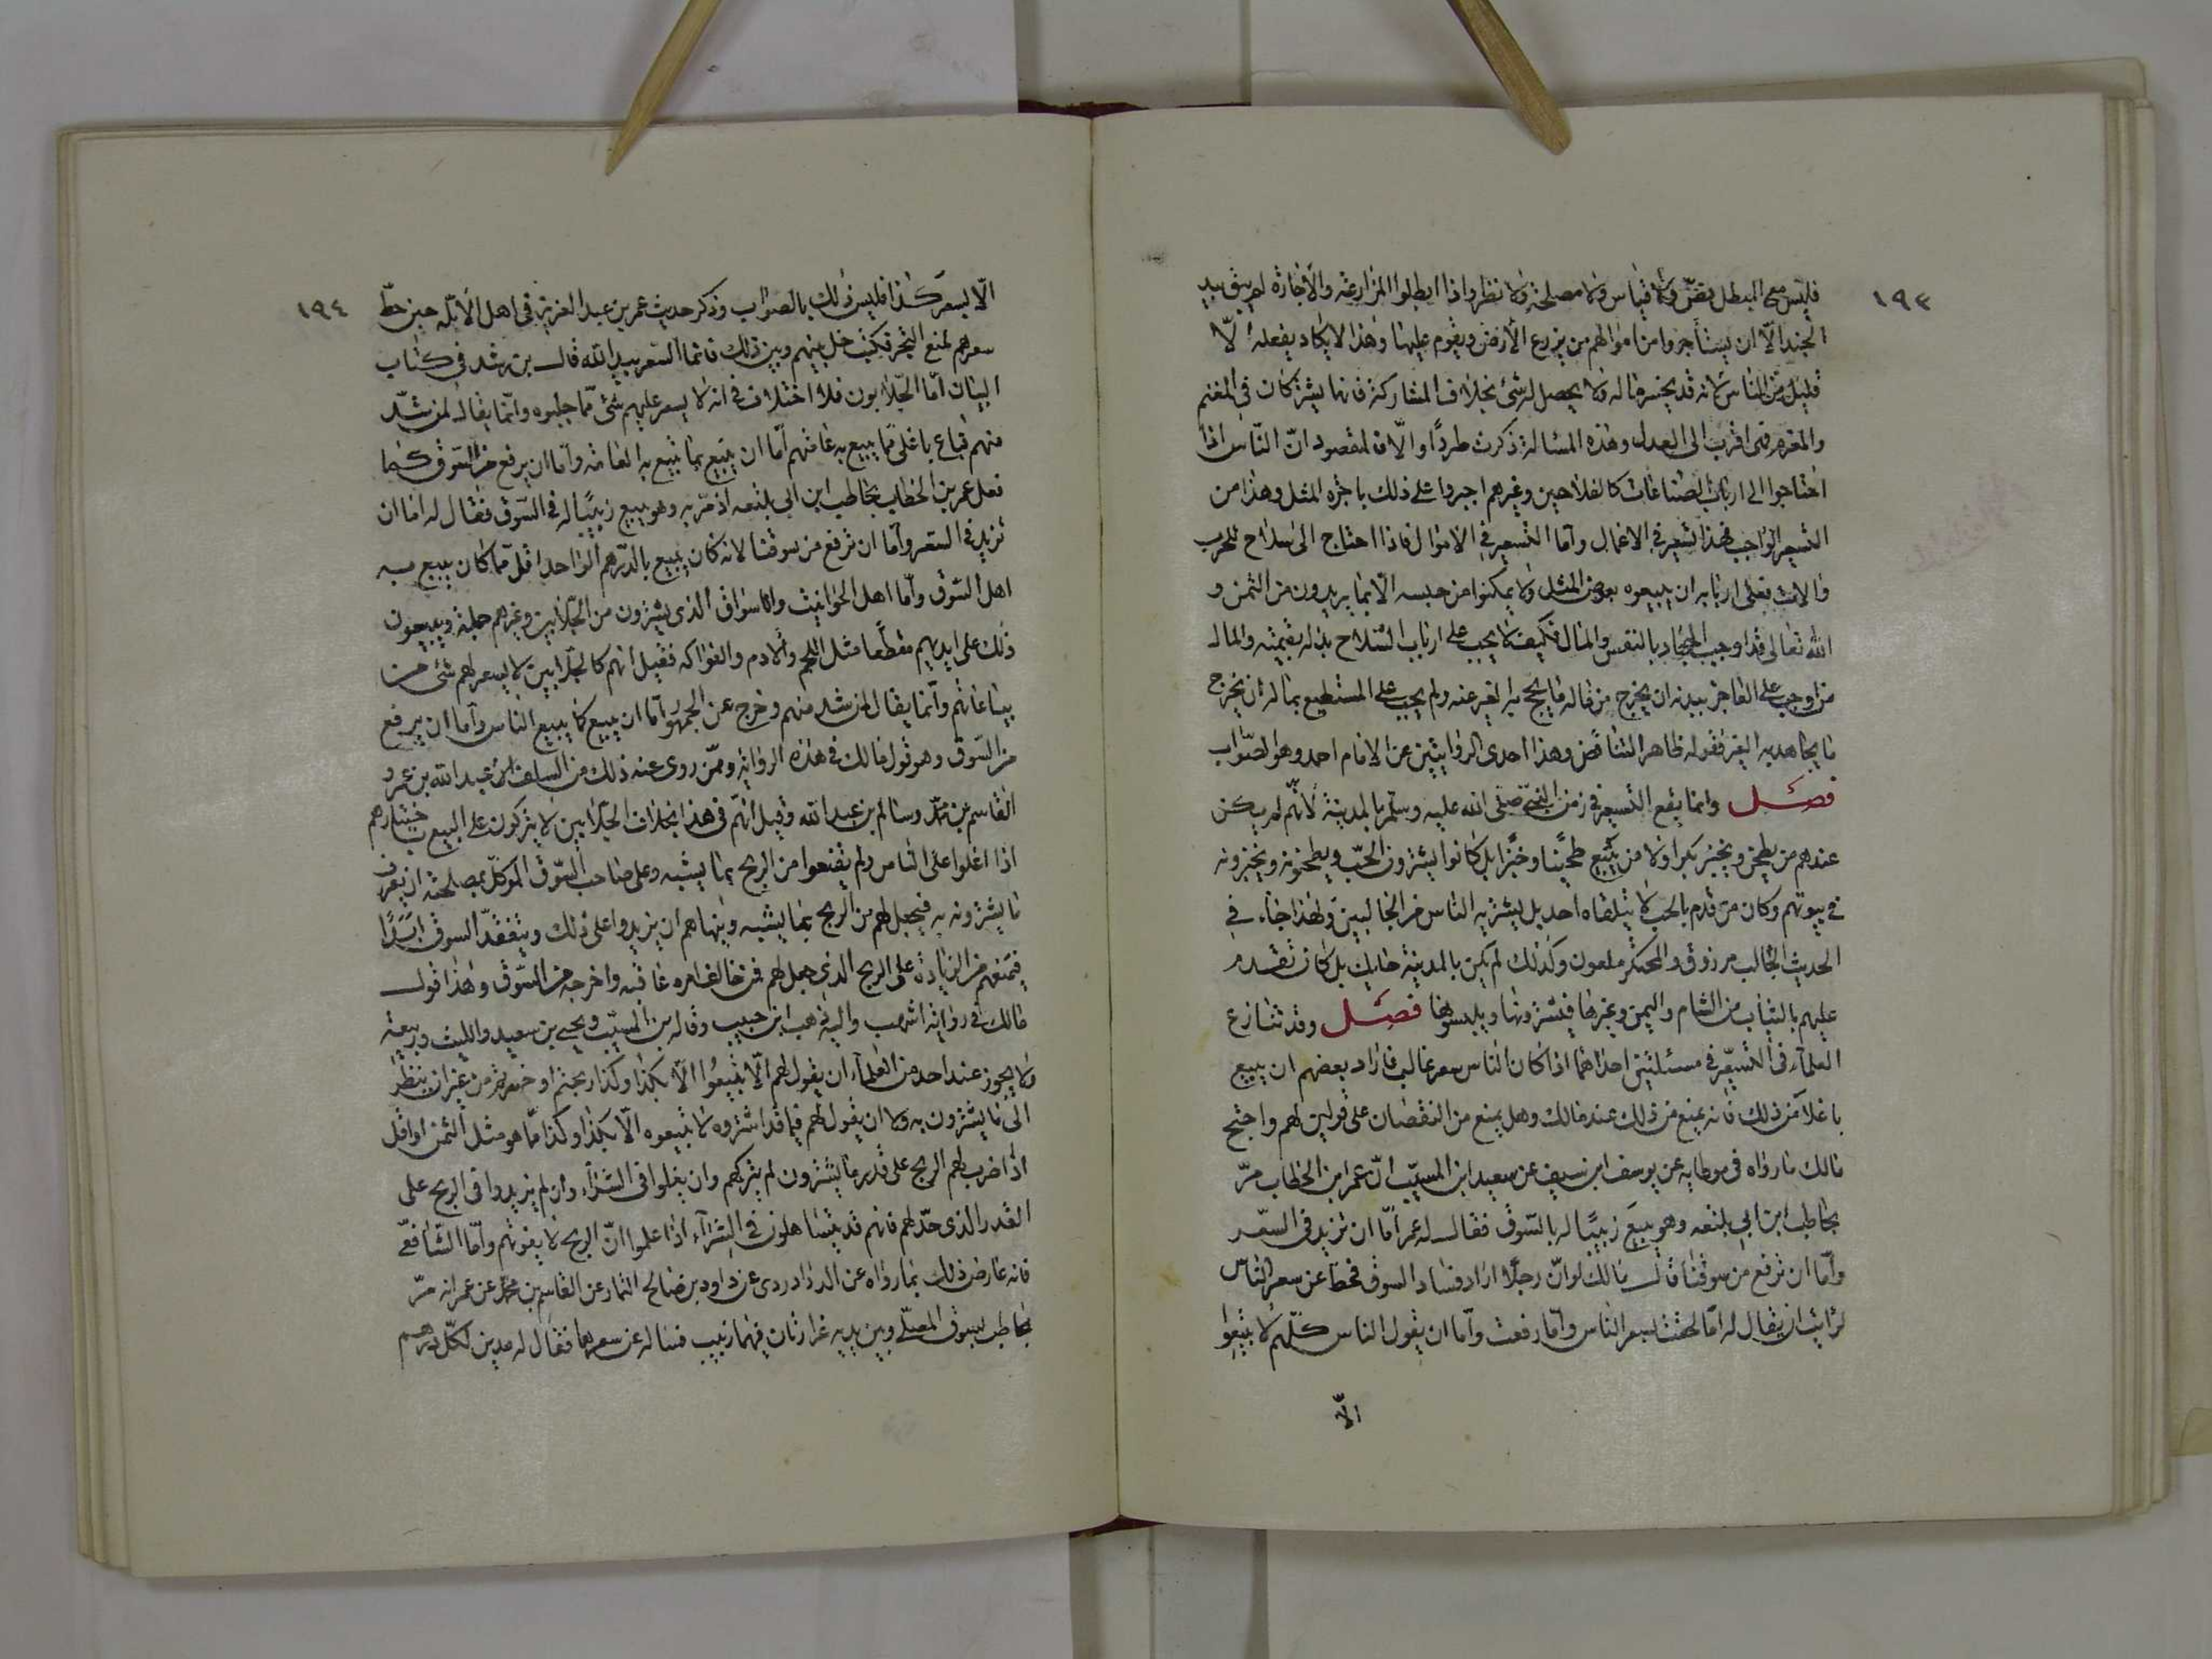 ١٩٣
فليس مع المبطل نصّ ولا قياس ولا مصلحة ولا نظر واذا ابطلوا المزارعة والاجارة لم يبق بيد
الجند الّا ان يستأجروا من اموالهم من يزرع الأرض ويقوم عليها وهذا لا يكاد يفعله الّا
قليل من الناس لانه قد يخسر ماله ولا يحصل له شئ بخلاف المشاركة فانها يشتركان في المغنم
والمغرم فهى اقرب الى العدل وهذه المسالة ذكرت طردًا والّا فالمقصود انّ النّاس اذا
احتاجوا الى ارباب الصناعات كالفلاحين وغيرهم اجبروا على ذلك باجرة المثل وهذا من
التسعير الواجب فهذا تسعير في الاعمال وأما التسعير في الاموال فاذا احتاج الى سلاح للحرب
والات فعلى اربابه ان يبيعوه بعوض المثل ولا يمكنوا من حبسه الّا بما يريدون من الثمن و
الله تعالى قد اوجب الجهاد بالنفس والمال فكيف لا يجب على ارباب السّلاح بذله بقيمته والمال
من اوجب على العاجز ببدنه ان يخرج من ماله ما يحج به الغير عنه ولم يجب على المستطيع بماله ان يخرج
ما يجاهد به الغير فقوله ظاهر التناقض وهذا احدى الروايتين عن الامام احمد وهو الصّواب
فصل وانما يقع التسعير في زمن النبيّ صلّى الله عليه وسلّم بالمدينة لأنّهم لم يكن
عندهم من يطحن ويخبز بكرا ولا من يبيع طحينا وخبزا بل كانوا يشترون الحبّ ويطحنونه ويخبزونه
في بيوتهم وكان من قدم بالحب لا يتلقاه احد بل يشتريه الناس من الجالبين ولهذا جاء في
الحديث الجالب مرزوق والمحتكر ملعون وكذلك لم يكن بالمدينة حايك بل كان تقدم
عليهم بالثياب من الشام واليمن وغيرها فيشترونها ويلبسونها فصل وقد تنازع
العلمآء في التسعير في مسئلتين احداهما اذا كان للناس سعر غالب فاراد بعضهم ان يبيع
باغلا من ذلك فانه يمنع من ذلك عند مالك وهل يمنع من النقصان على قولين لهم واحتج
مالك بما رواه في موطايه عن يوسف ابن سيف عن سعيد ابن المسيّب انّ عمر ابن الخطاب مرّ
بحاطب ابن ابي بلتعه وهو يبيع زبيبًا له بالسّوق فقال له عمر أمّا ان تزيد في السّعر
وأمّا ان ترفع من سوقنا قال مالك لو انّ رجلًا اراد فساد السوق فحط عن سعر النّاس
لرايت ان يقال له امّا لحقت بسعر الناس وأمّا رفعت وأمّا ان يقول الناس كلّهم لا تبيعوا
الّا
١٩٤
الّا بسعر كذا فليس ذلك بالصواب وذكر حديث عمر بن عبد العزيز في اهل الأبلّه حين حطّ
سعرهم لمنع البحر فكتب خل بينهم وبين ذلك فانما السّعر بيد الله قال بن رشد في كتاب
البيان أمّا الجّلابون فلا اختلاف في انه لا يسعر عليهم شئ ممّا جلبوه وانّما يقال لمن شذّ
منهم فباع باغلى ممّا يبيع به عامتهم أمّا ان يبيع بما تبيع به العامّه وأمّا ان يرفع من السّوق كما
فعل عمر بن الخطاب بحاطب ابن ابي بلتعه اذ مرّ به وهو يبيع زبيبًا له في السّوق فقال له اما ان
تزيد في السّعر وأمّا ان ترفع من سوقنا لانه كان يبيع بالدّرهم الواحد اقلّ ممّا كان يبيع به
اهل السّوق وأمّا اهل الحوانيت والاسواق الذي يشترون من الجّلابين وغيرهم جملة ويبيعون
ذلك على ايديهم مقطّعا مثل اللحم والادم والفواكه فقيل انهم كالجلّابين لا يسعر لهم شئ من
بياعاتهم وأنّما يقال لمن شذ منهم وخرج عن الجمهور أمّا ان يبيع كما يبيع الناس وأما ان يرفع
من السّوق وهو قول مالك في هذه الرواية وممّن روى عنه ذلك من السلف ابن عبد الله بن عمر و
القاسم بن محمّد وسالم بن عبد الله وقيل انّهم في هذا بخلاف الجلّابين لا يتركون على البيع باختيارهم
اذا اغلوا على الناس ولم يقنعوا من الربح بما يشبه وعلى صاحب السّوق الموكّل بمصلحته ان يعرف
ما يشترونه به فيجعل لهم من الربح بما يشبه وينهاهم ان يزيدوا على ذلك ويتفقّد السوق ابدًا
فيمنعهم من الزيادة على الربح الذي جعل لهم فمن خالف امره عاقبه واخرجه من السّوق وهذا قول
مالك في رواية اشهب واليه ذهب ابن حبيب وقاله بن المسيّب ويحيى بن سعيد والليث وربيعة
ولا يجوز عند احد من العلمآء ان يقول لهم الّا تبيعُوا الّا بكذا وكذا ربحتم او خسرتم من غير ان ينظر
الى ما يشترون به ولا ان يقول لهم فيما قد اشتروه لا تبيعوه الّا بكذا وكذا ممّا هو مثل الثمن او اقل
اذا ضرب لهم الربح على قدر ما يشترون لم يتركهم وان يغلوا في الشراء وان لم يزيدوا في الربح على
القدر الذي حدّ لهم فانهم قد يتساهلون في الشرآء اذا علموا انّ الربح لا يفوتهم وأمّا الشّافعيّ
فانه عارض ذلك بما رواه عن الدراوردى عن داود بن صالح التمار عن القاسم بن محمّد عن عمر انه مرّ
بحاطب بسوق المصلّى وبين يديه غرارتان فيهما زبيب فساله عن سعرهما فقال له مدين لكلّ درهم